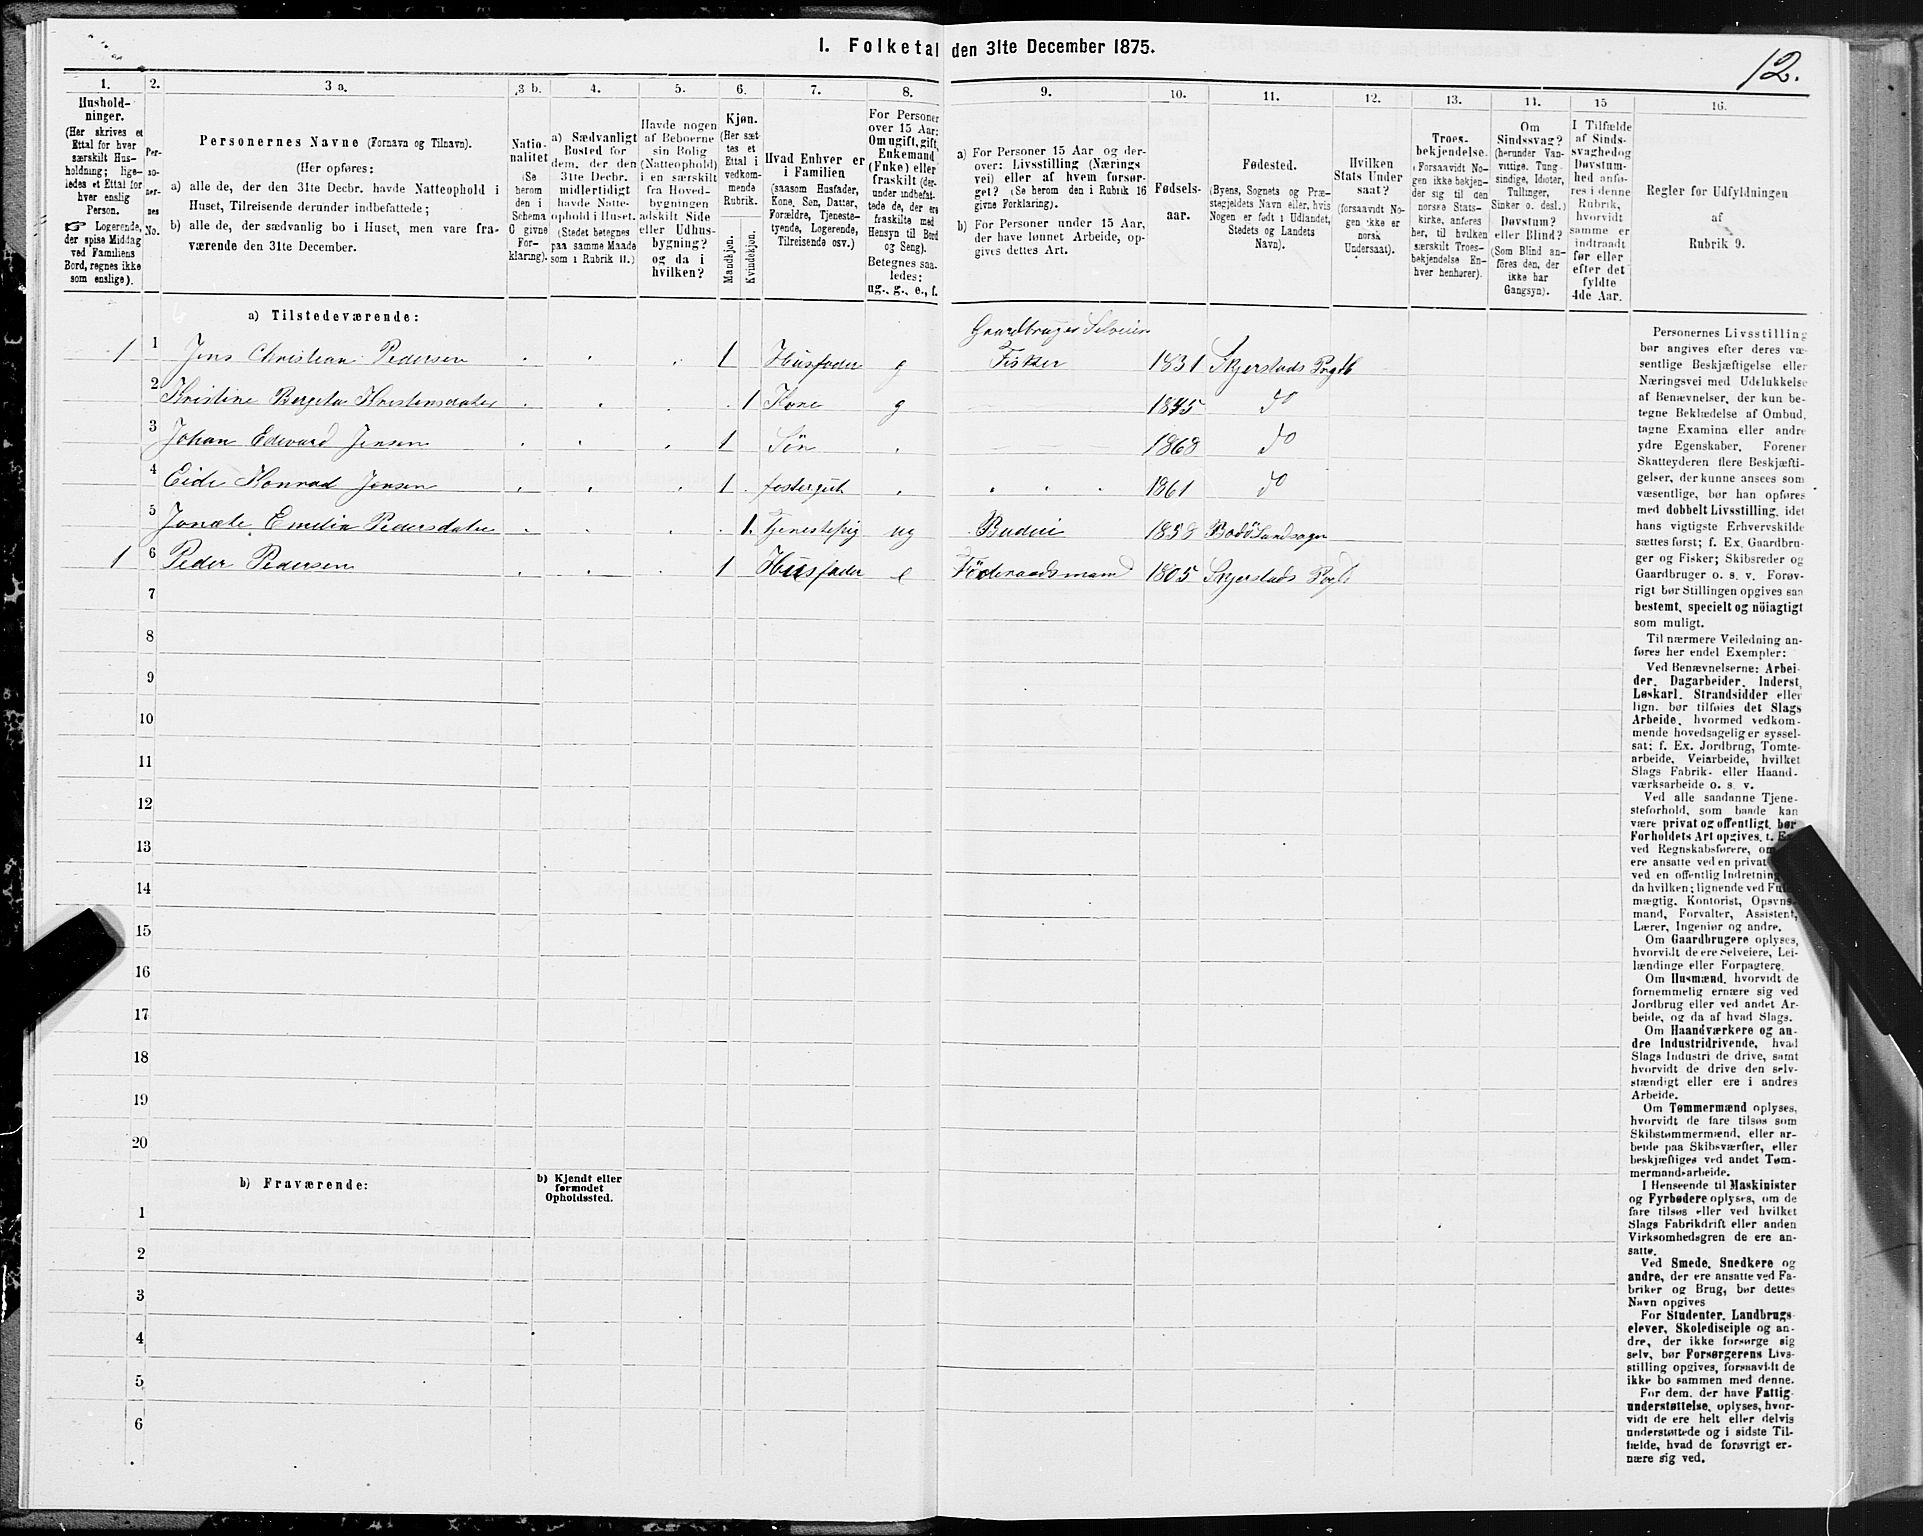 I. Folketal den 31te December 1875.
12.
1.
2.
3 a.
3 b.
4.
5.
6.
7.
8.
9.
10.
11.
12.
13.
14.
15
16.
Hushold-
ninger.
(Her skrives et
Ettal for hver
særskilt Hus-
holdning; lige-
ledes et Ettal for
hver enslig
Person.
☞ Logerende,
der spise Middag
ved Familiens
Bord, regnes ikke
som enslige).
Per-
so-
ner-
nes
No.
Personernes Navne (Fornavn og Tilnavn).
(Her opføres:
a) alle de, der den 31te Decbr. havde Natteophold i
Huset, Tilreisende derunder indbefattede;
b) alle de, der sædvanlig bo i Huset, men vare fra-
værende den 31te December.
Natio-
nalitet
(Se
herom
den i
Schema
C givne
For-
klaring).
a) Sædvanligt
Bosted for
dem, der den
31te Decbr.
midlertidigt
havde Natte-
ophold i Huset.
(Stedet betegnes
paa samme Maade
som i Rubrik 11.)
Havde nogen
af Beboerne
sin Bolig
(Natteophold)
i en særskilt
fra Hoved-
bygningen
adskilt Side
eller Udhus-
bygning?
og da i
hvilken?
Kjøn.
(Her sæt-
tes et
Ettal i
vedkom-
mende
Rubrik.
Mandkjøn.
Kvindekjøn.
Hvad Enhver er
i Familien
(saasom Husfader,
Kone, Søn, Datter,
Forældre, Tjeneste-
tyende, Logerende,
Tilreisende osv.)
For Personer
over 15 Aar:
Om ugift, gift,
Enkemand
(Enke) eller
fraskilt (der-
under indbefat-
tede de, der ere
fraskilte med
Hensyn til Bord
og Seng).
Betegnes saa-
ledes:
ug., g., e., f.
a) For Personer 15 Aar og der-
over: Livsstilling (Nærings
vei) eller af hvem forsør-
get? (Se herom den i Rubrik 16
givne Forklaring).
b) For Personer under 15 Aar,
der have lønnet Arbeide, op-
gives dettes Art.
Fødsels-
aar.
Fødested.
(Byens, Sognets og Præ-
stegjeldets Navn eller, hvis
Nogen er født i Udlandet,
Stedets og Landets
Navn).
Hvilken
Stats Under
saat?
(forsaavidt No-
gen ikke er
norsk
Undersaat).
Troes-
bekjendelse.
(Forsaavidt No-
gen ikke bekjen-
der sig til den
norske Stats-
kirke, anføres
her, til hvilken
særskilt Troes-
bekjendelse En-
hver henhører).
Om
Sindssvag?
(herunder Van-
vittige, Tung-
sindige, Idioter,
Tullinger,
Sinker o. desl.)
Døvstum?
eller Blind?
(Som Blind an-
føres den, der
ikke har
Gangsyn).
I Tilfælde
af Sinds-
svaghed og
Døvstum-
hed anfø-
res i denne
Rubrik,
hvorvidt
samme er
indtraadt
før eller
efter det
fyldte
4de Aar.
Regler for Udfyldningen
af
Rubrik 9.
a) Tilstedeværende:
Gaardbruger Selveier
1 1 Jens Christian Pedersen 1 Husfader g Fisker 1831 Skjerstads Prgld
2 Kristine Bergeta Kristensdater 1 Kone g 1845 do
3 Johan Edevard Jensen 1 Søn 1868 do
4 Eide Konrad Jensen 1 fostergut 1861 do
5 Emelia Pedersdater 1 Tjenestepig ug Budeie 1858 Bodö Landsogn
1 6 Peder Pedersen 1 Husfader e Föderaadsmand 1805 Skjerstads Prgld
7
8
9
10
11
12
13
14
15
16
17
18
19
20
b) Fraværende:
b) Kjendt eller
formodet
Opholdssted.
1
2
3
4
5
6
Personernes Livsstilling
bør angives efter deres væ-
sentlige Beskjæftigelse eller
Næringsvei med Udelukkelse
af Benævnelser, der kun be-
tegne Beklædelse af Ombud,
tagne Examina eller andre
ydre Egenskaber. Forener
Skatteyderen flere Beskjæfti-
gelser, der kunne ansees som
væsentlige, bør han opføres
med dobbelt Livsstilling, idet
hans vigtigste Erhvervskilde
sættes først; f. Ex. Gaardbru-
ger og Fisker; Skibsreder og
Gaardbruger o. s. v. Forøv-
rigt bør Stillingen opgives saa
bestemt, specielt og nöiagtigt
som muligt.
Til nærmere Veiledning an-
føres her endel Exempler:
Ved Benævnelserne: Arbei-
der, Dagarbeider, Inderst,
Løskarl, Strandsidder eller
lign. bør tilføies det Slags
Arbeide, hvormed vedkom-
mende hovedsagelig er syssel-
sat; f. Ex. Jordbrug, Tomte-
arbeide, Veiarbeide, hvilket
Slags Fabrik- eller Haand-
værksarbeide o. s. v.
Ved alle saadanne Tjene-
steforhold, som baade kan
være privat og offentligt, bør
Forholdets Art opgives, t. Ex.
ved Regnskabsførere, om
ere ansatte ved en privat
ved en offentlig Indretning
da hvilken; lignende ved Ful-
mægtig, Kontorist, Opsyns-
mand, Forvalter, Assistent,
Lærer, Ingeniør og andre.
Om Gaardbrugere oplyses,
hvorvidt de ere Selveiere, Lei-
lændinge eller Forpagtere.
Om Husmænd, hvorvidt de
fornemmelig ernære sig ved
Jordbrug eller ved andet Ar-
beide, og da af hvad Slags.
Om Haandværkere og an-
dre Industridrivende, hvad
Slags Industri de drive, samt
hvorvidt de drive den selv-
stændigt eller ere i andres
Arbeide.
Om Tømmermænd oplyses,
hvorvidt de fare tilsøs som
Skibstømmermænd, eller ar-
beide paa Skibsværfter, eller
beskjæftiges ved andet Tøm-
mermandsarbeide.
I Henseende til Maskinister
og Fyrbødere oplyses, om de
fare tilsøs eller ved hvilket
Slags Fabrikdrift eller anden
Virksomhedsgren de ere an-
satte.
Ved Smede, Snedkere og
andre, der ere ansatte ved Fa-
briker og Brug, bør dettes
Navn opgives
For Studenter, Landbrugs-
elever, Skoledisciple og an-
dre, der ikke forsørge sig
selv, bør Forsørgerens Livs-
stilling opgives, forsaavidt de
ikke bo sammen med denne.
For dem, der have Fattig-
understøttelse, oplyses, hvor-
vidt de ere helt eller delvis
understøttede og i sidste Til-
fælde, hvad de forøvrigt er-
nære sig ved.